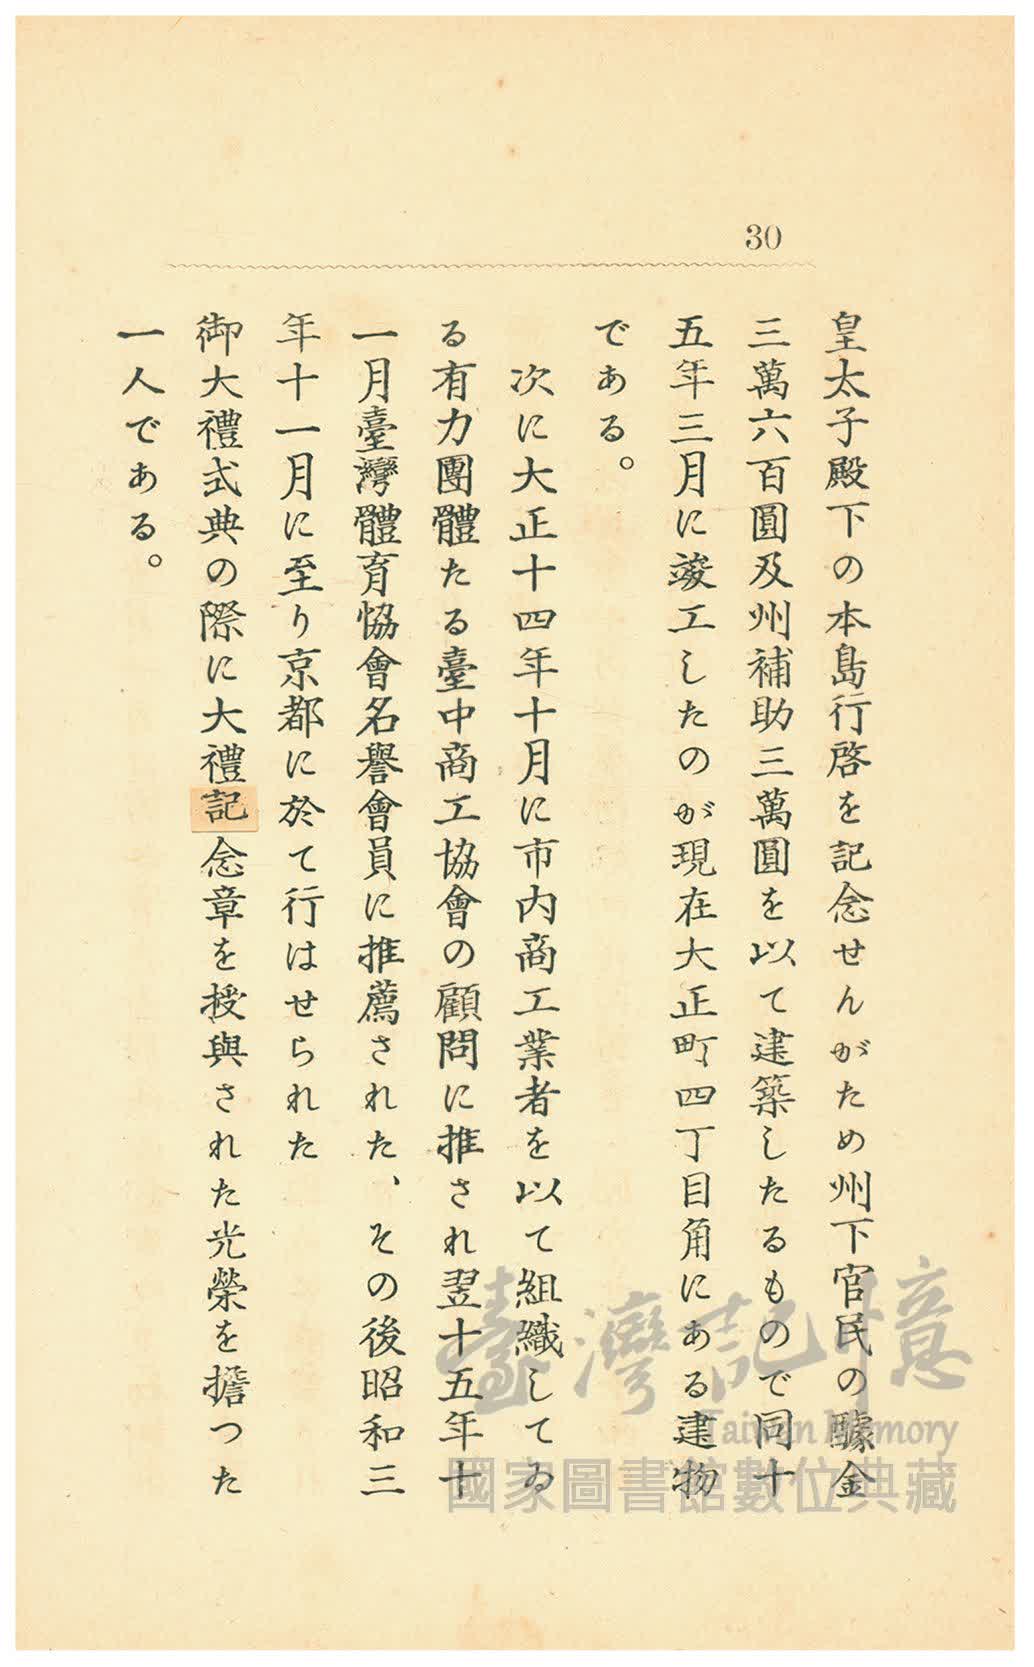 30
皇太子殿下の本島行啓を記念せんがため州下官民の醵金
三萬六百圓及州補助三萬圓を以て建築したるもので同十
五年三月に竣工したのが現在大正町四丁目角にある建物
である。
次に大正十四年十月に市內商工業者を以て組織してゐ
る有力團體たる臺中商工協會の顧問に推され翌十五年十
一月臺灣體育協會名譽會員に推薦された、その後昭和三
年十一月に至り京都に於て行はせられた
御大禮式典の際に大禮記念章を授與された光榮を擔つた
一人である。
臺灣記憶
Taiwan Memory
國家圖書館數位典藏